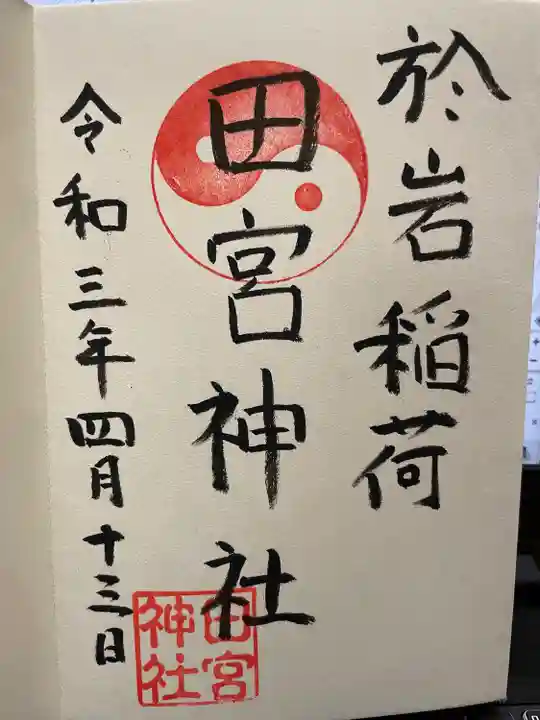 於岩稲荷
田宮神社
令和三年四月十三日
田宮神社